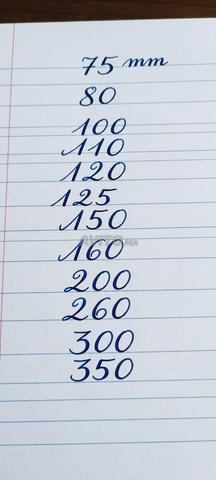 75 mm
80
100
110
120
125
150
AVITO.MA
160
200
260
300
350